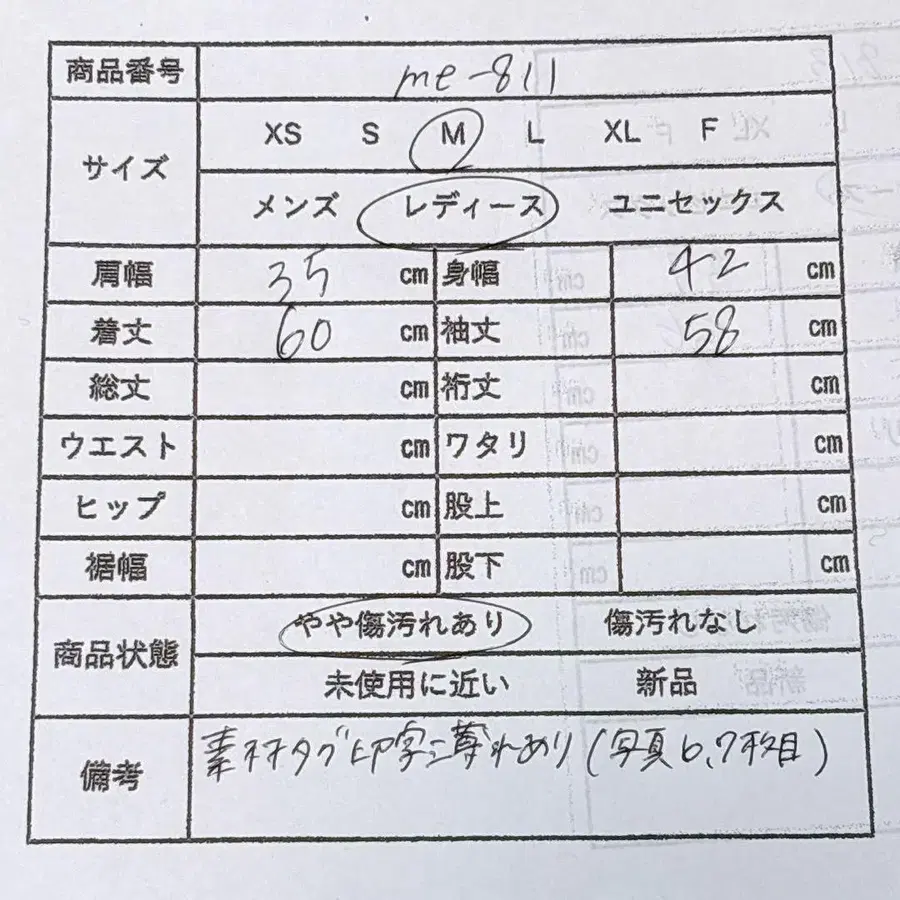 商品番号 me-811
サイズ XS S M L XL F
メンズ レディース ユニセックス
肩幅 35 cm 身幅 42 cm
着丈 60 cm 袖丈 58 cm
総丈 cm 裄丈 cm
ウエスト cm ワタリ cm
ヒップ cm 股上 cm
裾幅 cm 股下 cm
商品状態 やや傷汚れあり 傷汚れなし
未使用に近い 新品
備考 素材タグ印字に薄れあり(写真6,7枚目)